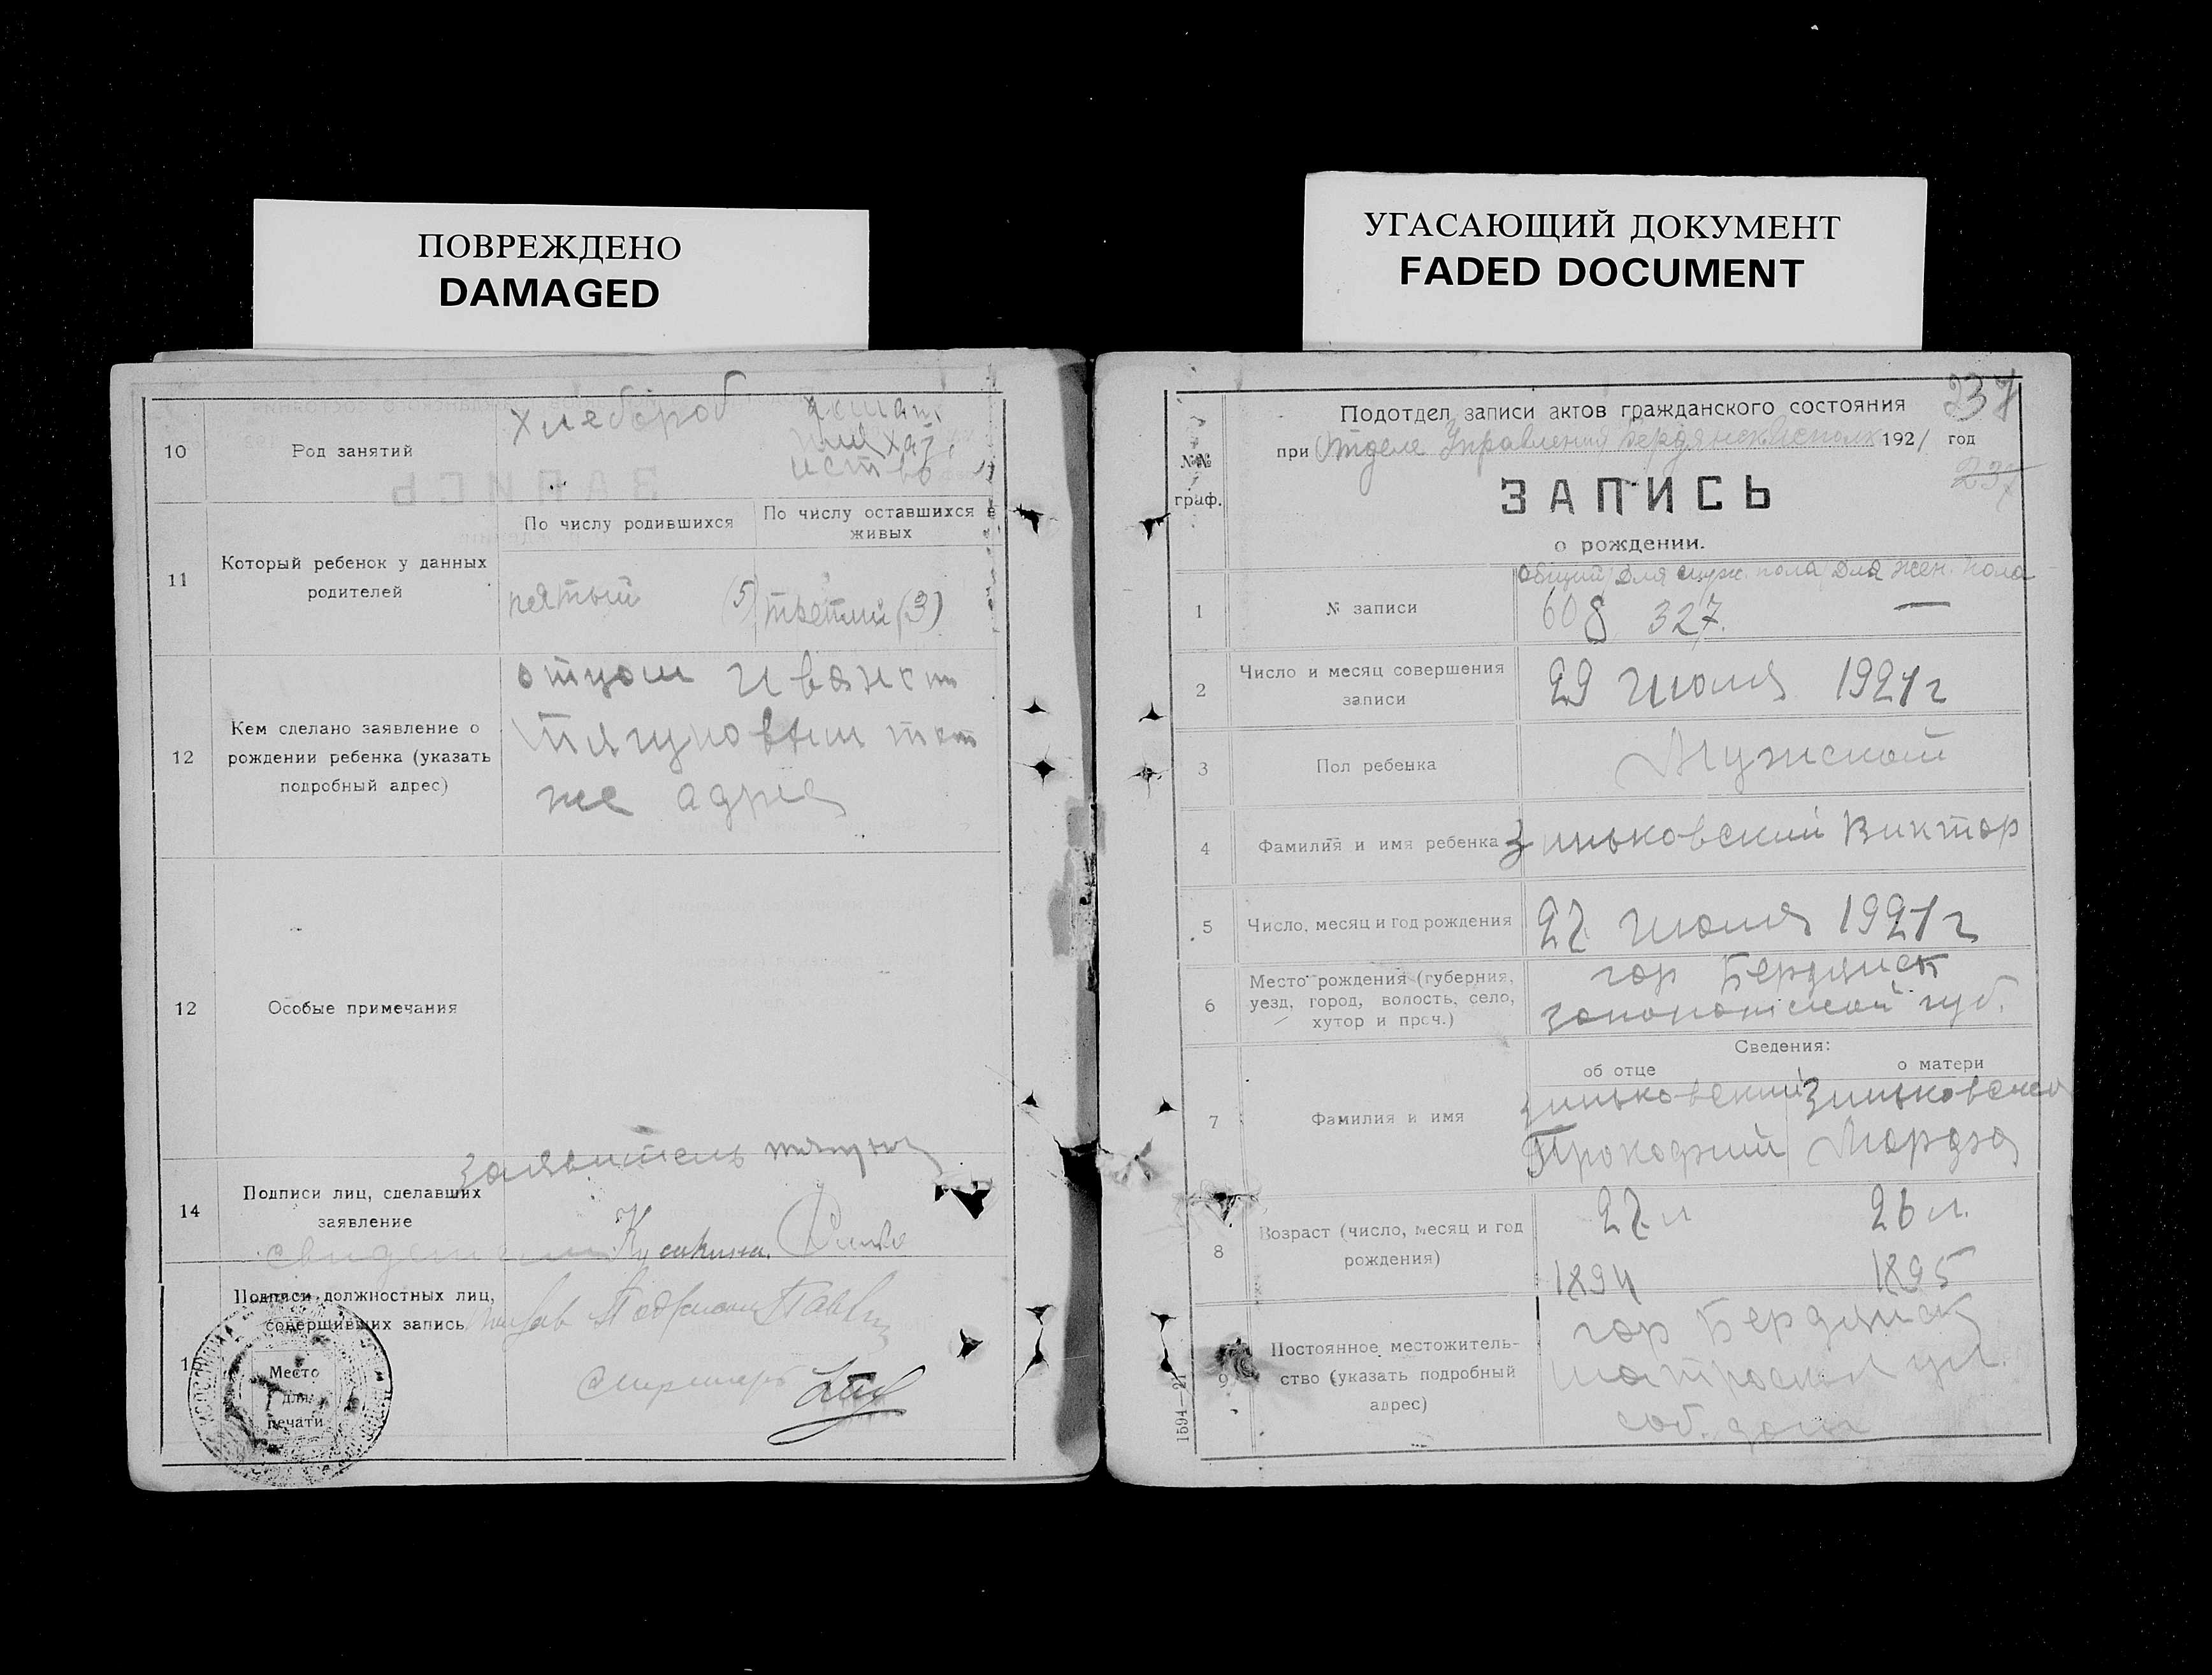 ПОВРЕЖДЕНО
DAMAGED
10
Род занятий
хлебороб
11
Который ребенок у данных
родителей
По числу родившихся
По числу оставшихся в
живых
пятый (5)
третий (3)
12
Кем сделано заявление о
рождении ребенка (указать
подробный адрес)
отцом
же адрес
12
Особые примечания
14
Подписи лиц, сделавших
заявление
заявитель
15
Подписи должностных лиц,
совершивших запись
Место
для
печати
УГАСАЮЩИЙ ДОКУМЕНТ
FADED DOCUMENT
237
Подотдел записи актов гражданского состояния
при Отделе Управления 1921 год
237
№№
граф.
ЗАПИСЬ
о рождении.
общий для муж. пола для жен. пола
1
№ записи
608 327. —
2
Число и месяц совершения
записи
29 июля 1921 г
3
Пол ребенка
Мужской
4
Фамилия и имя ребенка
Зиньковский Виктор
5
Число, месяц и год рождения
27 июля 1921 г
6
Место рождения (губерния,
уезд, город, волость, село,
хутор и проч.)
гор Бердянск
губ.
Сведения:
об отце
о матери
7
Фамилия и имя
Зиньковский
Прокофий
Зиньковская
Марфа
8
Возраст (число, месяц и год
рождения)
27 л
1894
26 л.
1895
9
Постоянное местожитель-
ство (указать подробный
адрес)
гор Бердянск
ул.
соб. дом
1594—21